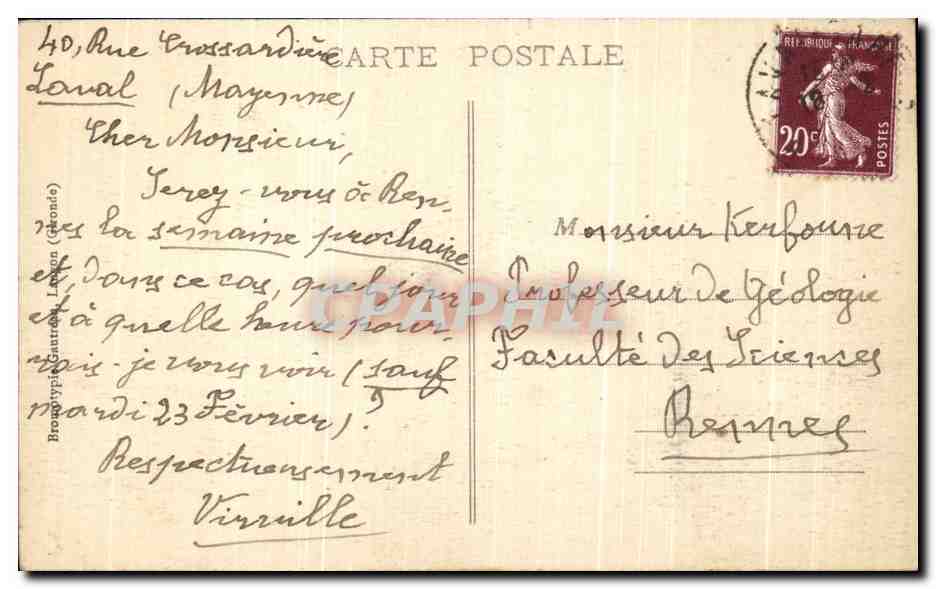 40, Rue Crossardière
Laval (Mayenne)
Cher Monsieur,
Serez-vous à Ren-
nes la semaine prochaine
et, dans ce cas, quel jour
et à quelle heure pour-
rais-je vous voir (sauf
mardi 23 Février)?
Respectueusement
CARTE POSTALE
REPUBLIQUE FRANÇAISE
20c
POSTES
Monsieur Kerforne
Professeur de Géologie
Faculté des Sciences
Rennes
Bromotypie Gautreau, Langon (Gironde)
CPAPHIL